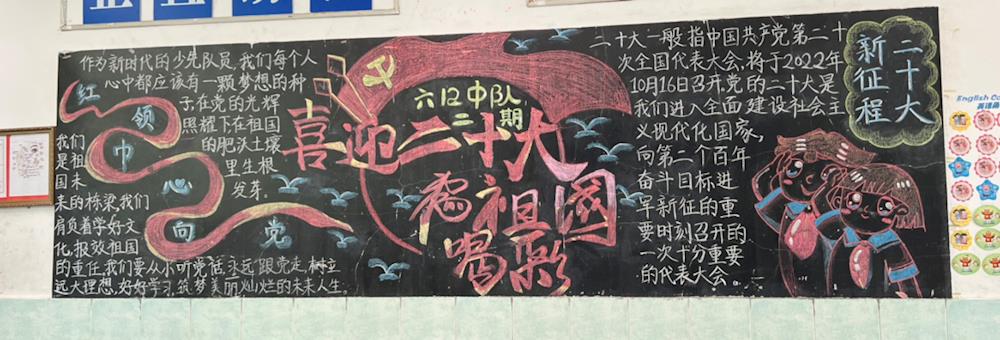 作为新时代的少先队员,我们每个人
心中都应该有一颗梦想的种
子在党的光辉
照耀下在祖国
的肥沃土壤
里生根
发芽.
我们
是祖
国未
来的栋梁,我们
肩负着学好文
化,报效祖国
的重任.我们要从小听党话,永远跟党走,树立
远大理想,好好学习,筑梦美丽灿烂的未来人生.
红领巾心向党
六12中队
二期
喜迎二十大
为祖国
喝彩
二十大一般指中国共产党第二十
次全国代表大会,将于2022年
10月16日召开.党的二十大是
我们进入全面建设社会主
义现代化国家,
向第二个百年
奋斗目标进
军新征的重
要时刻召开的
一次十分重要
的代表大会.
二十大
新征程
English Co